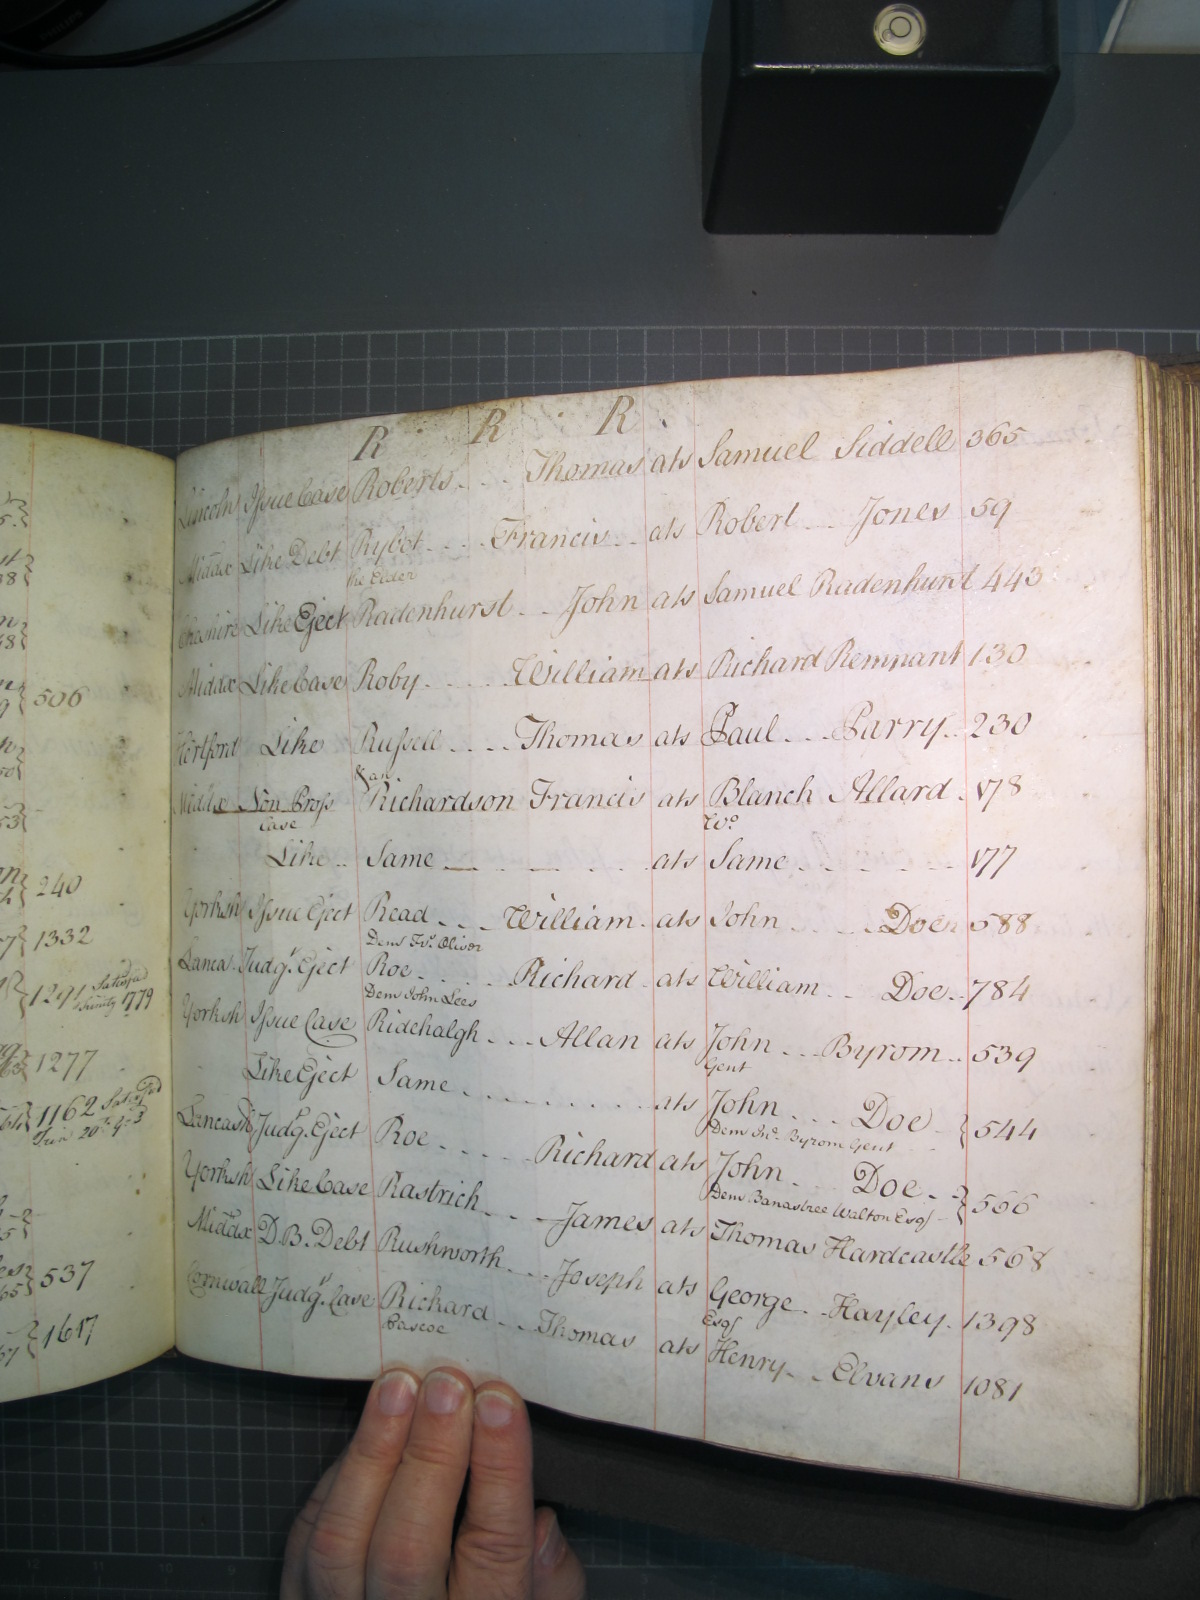 R R R
Lincoln Issue Case Roberts Thomas ats Samuel Siddell 365
Middx Like Debt Rybot Francis ats Robert Jones 59
the Elder
Cheshire Like Eject Radenhurst John ats Samuel Radenhurst 443
Middx Like Case Roby William ats Richard Remnant 130
Hertford Like Russell Thomas ats Paul Parry 230
& an
Middx Non Pross Richardson Francis ats Blanch Allard 178
Case Wo
Like Same ats Same 177
Yorksh Issue Eject Read William ats John Doe 588
Dems Frs. Oliver
Lanca Judgt. Eject Roe Richard ats William Doe 784
Dem John Lees
Yorksh Issue Case Ridehalgh Allan ats John Byrom 539
Gent
Like Eject Same ats John Doe 544
Dem Jno. Byrom Gent
Lancash Judgt. Eject Roe Richard ats John Doe 566
Dem Banastree Walton Esqr
Yorksh Like Case Rastrich James ats Thomas Hardcastle 568
Middx D.B. Debt Rushworth Joseph ats George Hayley 1398
Esqr
Cornwall Judgt. Case Richard Thomas ats Henry Elvans 1081
Cascoe
506
240
1332
1291 Satisfied
Trinity 1779
1277
1162 Satisfied
537
1617